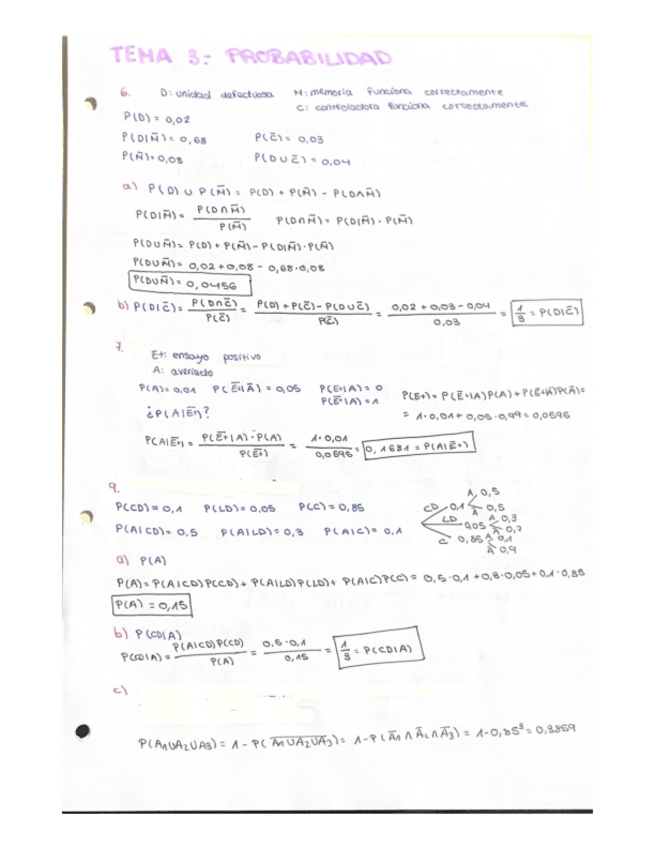 TEMA 3:- PROBABILIDAD
6. D: unidad defectuosa M: memoria funciona correctamente
C: controladora funciona correctamente
P(D) = 0,02
P(D|M̄) = 0,68 P(C̄) = 0,03
P(M̄) = 0,08 P(D∪C̄) = 0,04
a) P(D) ∪ P(M̄) = P(D) + P(M̄) - P(D∩M̄)
P(D|M̄) = P(D∩M̄) / P(M̄) P(D∩M̄) = P(D|M̄) · P(M̄)
P(D∪M̄) = P(D) + P(M̄) - P(D|M̄) · P(M̄)
P(D∪M̄) = 0,02 + 0,08 - 0,68·0,08
P(D∪M̄) = 0,0456
b) P(D|C̄) = P(D∩C̄) / P(C̄) = P(D) + P(C̄) - P(D∪C̄) / P(C̄) = 0,02 + 0,03 - 0,04 / 0,03 = 1/3 = P(D|C̄)
7.
E+: ensayo positivo
A: averiado
P(A) = 0,01 P(Ē+|Ā) = 0,05 P(E+|A) = 0
P(Ē+|A) = 1
P(E+) = P(Ē+|A)P(A) + P(Ē+|Ā)P(Ā) =
¿P(A|Ē+)?
= 1·0,01 + 0,05·0,99 = 0,0595
P(A|Ē+) = P(Ē+|A) · P(A) / P(Ē+) = 1·0,01 / 0,0595 = 0,1681 = P(A|Ē+)
9.
P(CD) = 0,1 P(LD) = 0,05 P(C) = 0,85
P(A|CD) = 0,5 P(A|LD) = 0,3 P(A|C) = 0,1
CD 0,1 A 0,5
Ā 0,5
LD 0,05 A 0,3
Ā 0,7
C 0,85 A 0,1
Ā 0,9
a) P(A)
P(A) = P(A|CD)P(CD) + P(A|LD)P(LD) + P(A|C)P(C) = 0,5·0,1 + 0,3·0,05 + 0,1·0,85
P(A) = 0,15
b) P(CD|A)
P(CD|A) = P(A|CD)P(CD) / P(A) = 0,5·0,1 / 0,15 = 1/3 = P(CD|A)
c)
P(A1∪A2∪A3) = 1 - P(A̅1̅∪̅A̅2̅∪̅A̅3̅) = 1 - P(Ā1 ∩ Ā2 ∩ Ā3) = 1 - 0,85³ = 0,3859